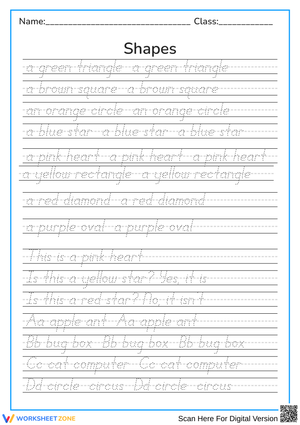 Name:______________________________ Class:____________
Shapes
a green triangle a green triangle
a brown square a brown square
an orange circle an orange circle
a blue star a blue star a blue star
a pink heart a pink heart a pink heart
a yellow rectangle a yellow rectangle
a red diamond a red diamond
a purple oval a purple oval
This is a pink heart
Is this a yellow star? Yes, it is
Is this a red star? No, it isn't
Aa apple ant Aa apple ant
Bb bug box Bb bug box Bb bug box
Cc cat computer Cc cat computer
Dd circle circus Dd circle circus
WORKSHEETZONE Scan Here For Digital Version